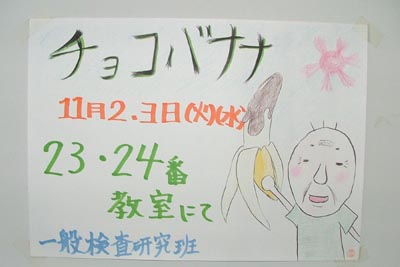 チョコバナナ
11月2.3日(火)(水)
23・24番
教室にて
一般検査研究班